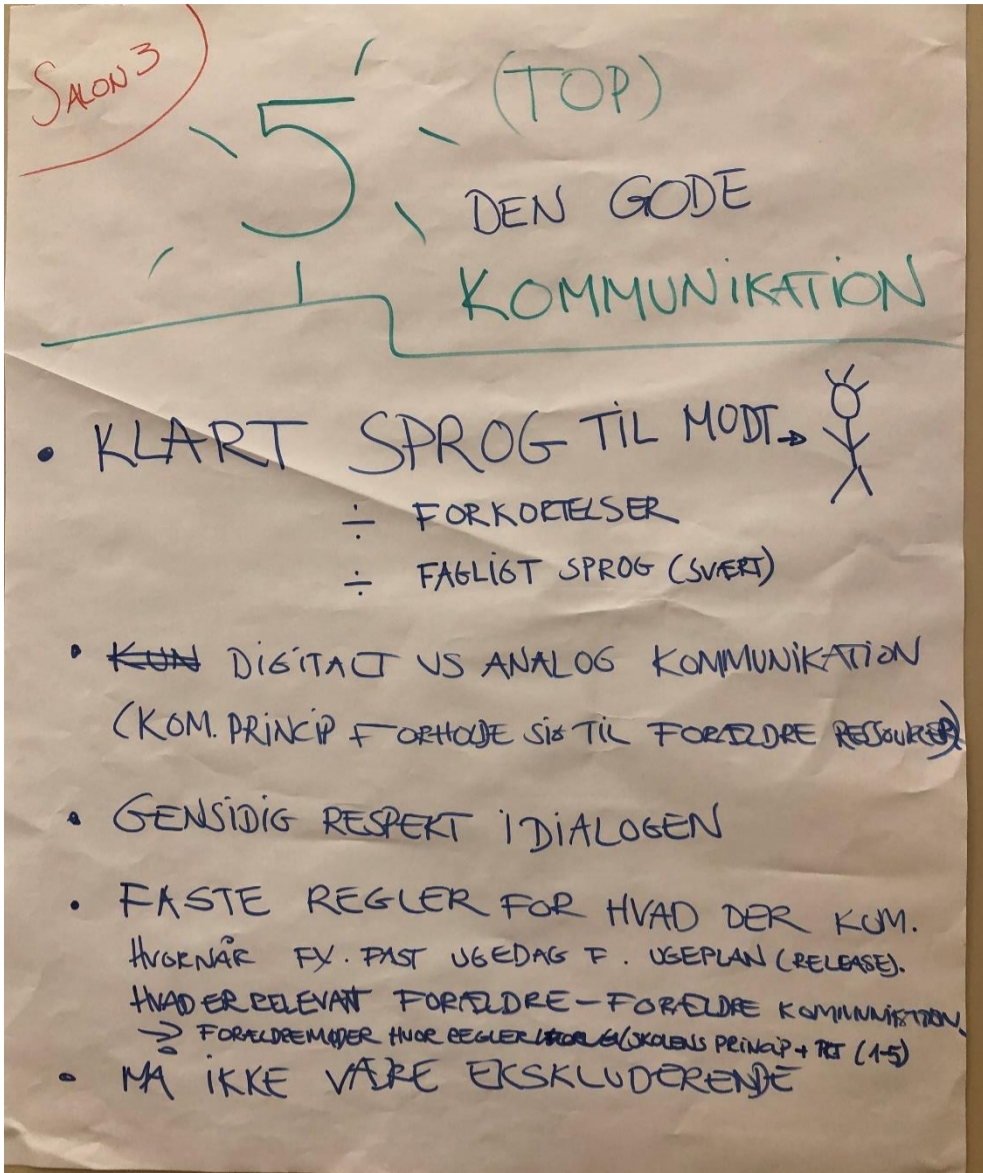 SALON 3
5 (TOP)
DEN GODE
KOMMUNIKATION
• KLART SPROG TIL MODT →
÷ FORKORTELSER
÷ FAGLIGT SPROG (SVÆRT)
• KUN DIGITALT VS ANALOG KOMMUNIKATION
(KOM. PRINCIP FORHOLDE SIG TIL FORÆLDRE RESSOURCER)
• GENSIDIG RESPEKT I DIALOGEN
• FASTE REGLER FOR HVAD DER KOM.
HVORNÅR FX. FAST UGEDAG F. UGEPLAN (RELEASE).
HVAD ER RELEVANT FORÆLDRE - FORÆLDRE KOMMUNIKATION.
→ FORÆLDREMØDER HVOR REGLER SKOLENS PRINCIP + (1-5)
• MÅ IKKE VÆRE EKSKLUDERENDE